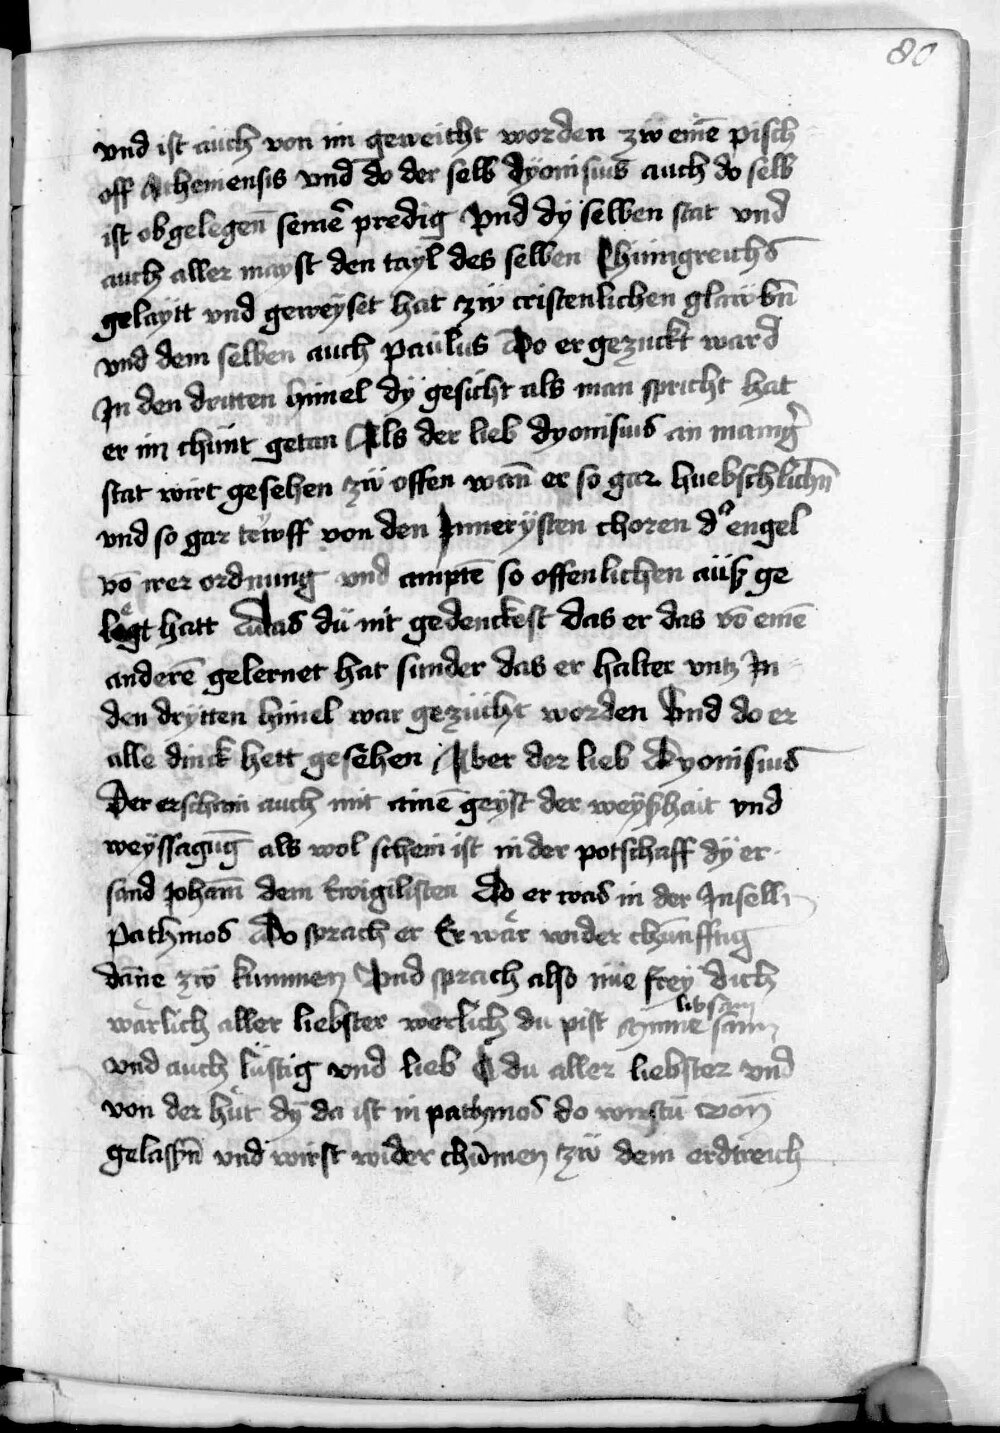 80
vnd ist auch von im geweicht worden zw eine̅ pisch
off Atheniensis vnd do der selb dyonisius auch do selb
ist obgelegen̅ seine̅ predig Vnd dy selben stat vnd
auch aller mayst den tayl des selben Chunigreichs
gelaytt vnd geweyset hat zw cristenlichen glawbn̅
vnd dem selben auch paulus Do er gezuckt ward
In den dritten himel dy gesicht als man spricht hat
er im chunt getan Als der lieb dyonisius an manig̉
stat wirt gesehen zw offen wan̅ er so gar huebschlichn̅
vnd so gar tewff von den Innerysten choren d̉ engel
vo̅ irer ordnung vnd ampte̅ so offenlichen auß ge
legt hatt Das du nit gedenckest das er das vo̅ eine̅
andere̅ gelernet hat sunder das er halter vntz In
den drytten himel war gezücht worden Vnd do er
alle dinck hett gesehen Aber der lieb Dyonisius
Der erschain auch mit aine̅ geyst der weyßhait vnd
weyssagu̅g als wol schein ist in der potschaff dy er
sand Johan̅ dem Ewigilisten Do er was in der Insell
Pathmos Do sprach er Er wär wider chu̅nfftig
dan̅e zw kummen Vnd sprach also nue frey dich
wärlich aller liebster werlich du pist libsam
vnd auch lustig vnd lieb O du aller liebster vnd
von der hut dy da ist in pathmos do wirstu von̅
gelassn̅ vnd wirst wider chu̅men zw dem erdtreich